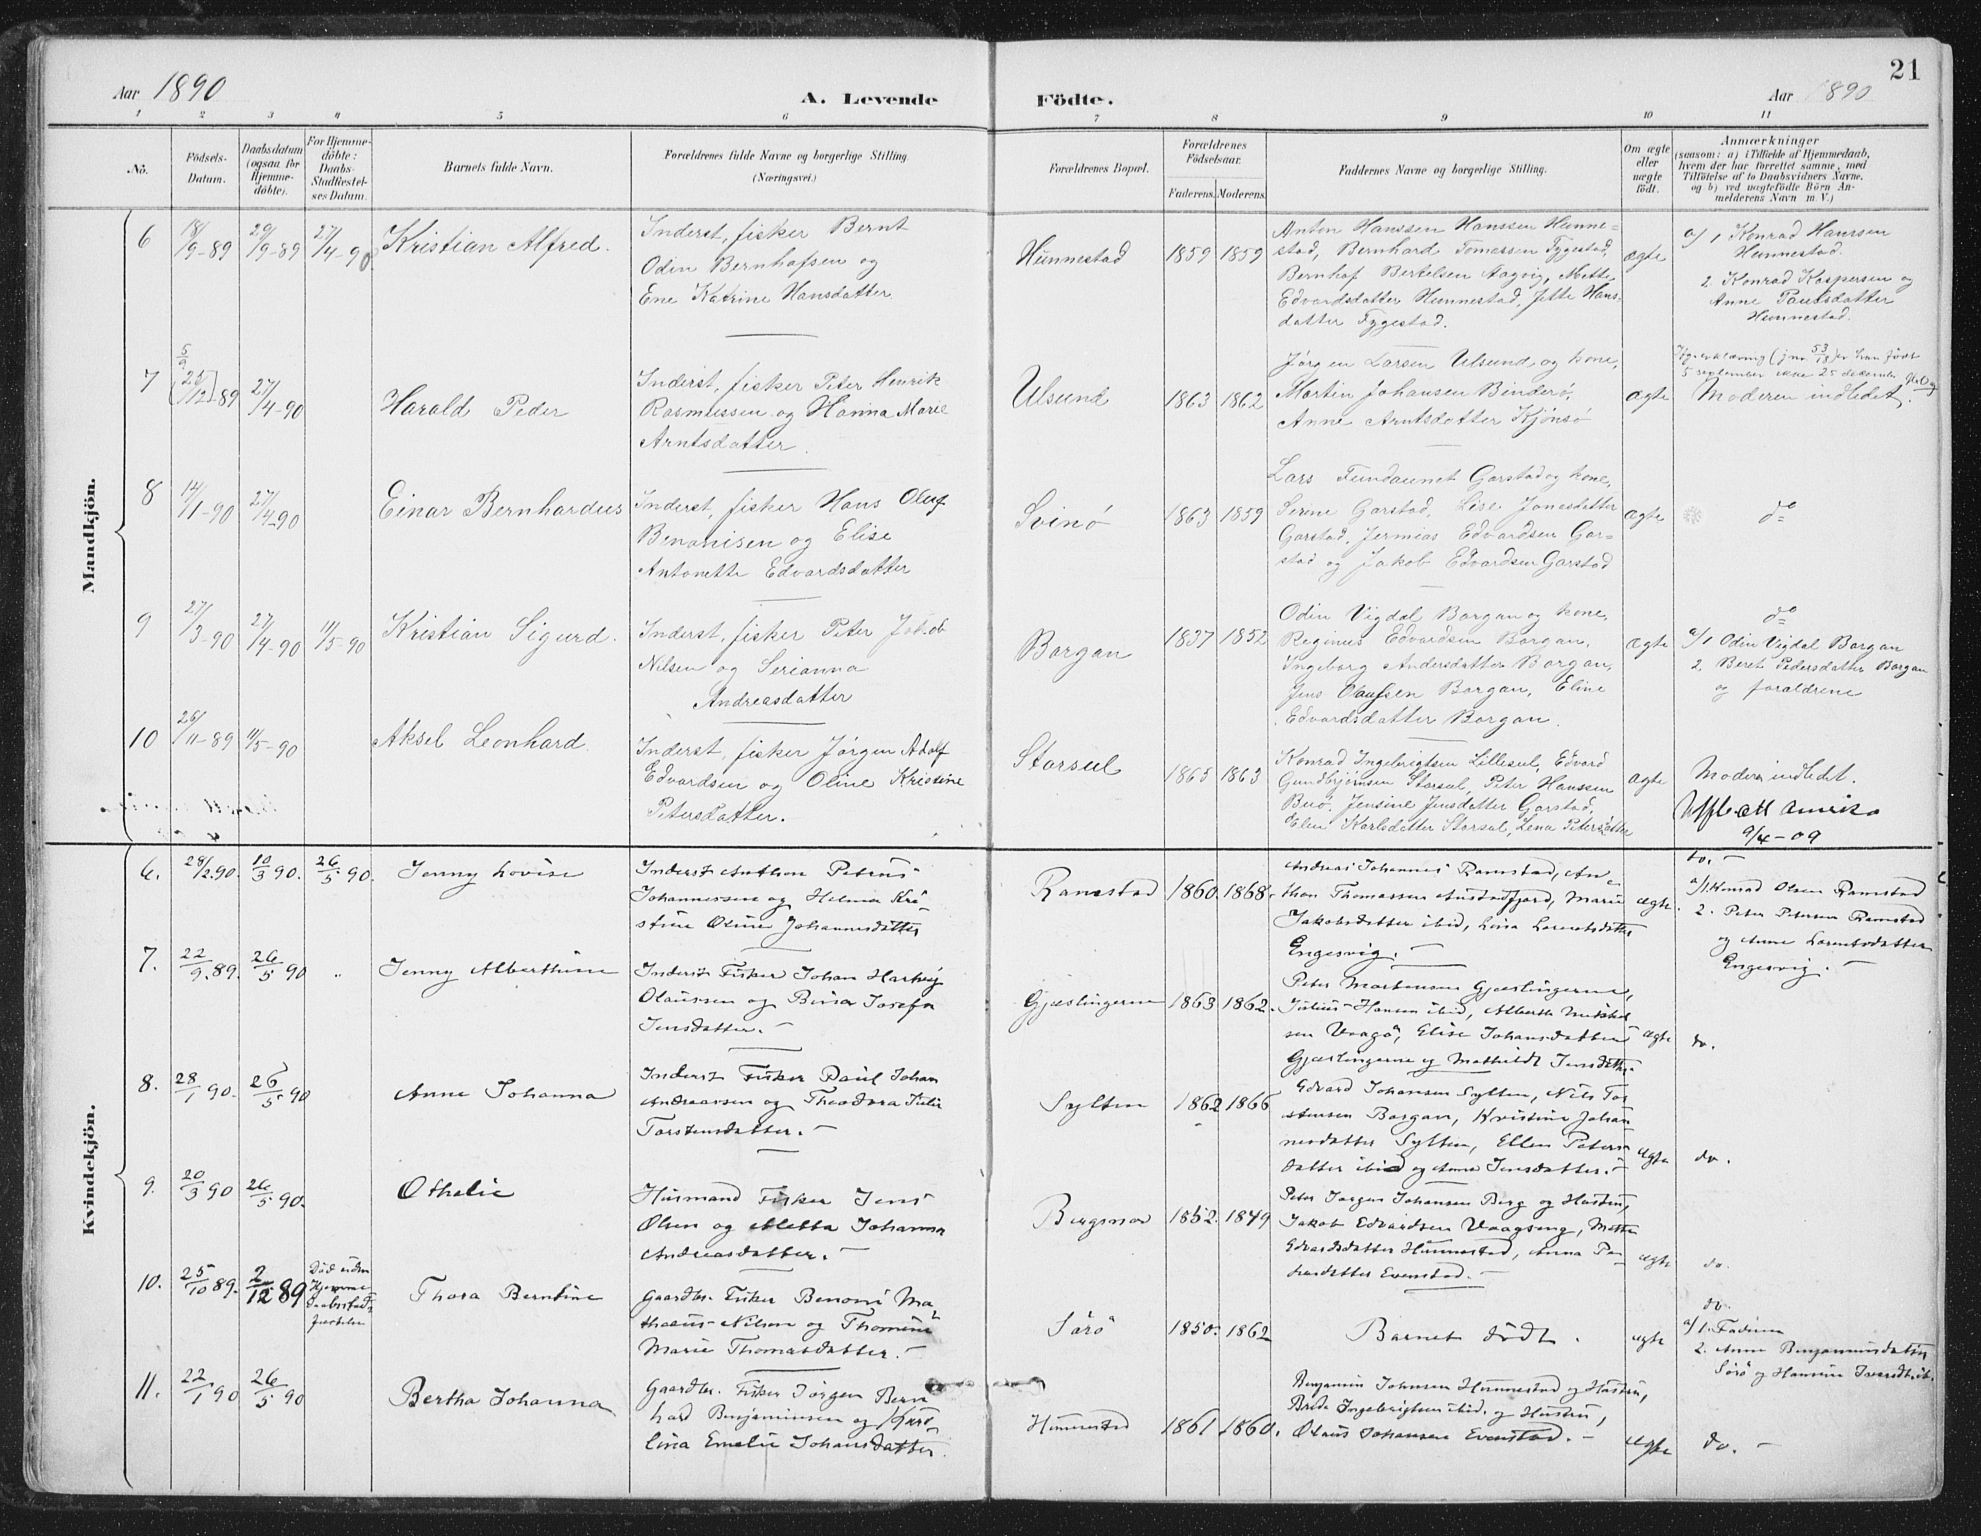 21
Aar 1890
A. Levende
Födte.
Aar 1890
1 2 3 4 5 6 7 8 9 10 11
No.
Födsels-
Datum.
Daabsdatum
(ogsaa for
Hjemme-
döbte).
For Hjemme-
döbte:
Daabs-
Stadfæstel-
ses Datum.
Barnets fulde Navn.
Forældrenes fulde Navne og borgerlige Stilling
(Næringsvei.)
Forældrenes Bopæl.
Forældrenes
Födselsaar.
Faderens. Moderens.
Faddernes Navne og borgerlige Stilling.
Om ægte
eller
uægte
födt.
Anmærkninger
(saasom: a) i Tilfælde af Hjemmedaab,
hvem der har forrettet samme, med
Tilföielse af to Daabsvidners Navne,
og b) ved uægtefödte Börn An-
melderens Navn m. V.)
Mandkjön.
6
18/9-89
29/9-89
27/4-90
Kristian Alfred.
Inderst, fisker Bernt
Odin Bernhafsen og
Ene Katrine Hansdatter
Hunnestad
1859 1859
Anton Hanssen Hanssen Hunne-
stad, Bernhard Tomassen Fygestad,
Bernhof Bertelsen Aagvig, Mette
Edvardsdatter Hunnestad, Jette Hans-
datter Fygestad.
ægte
a/ 1 Konrad Hanssen
Hunnestad.
2 Konrad Kaspersen og
Anne Paulsdatter
Hunnestad.
7
5/9
[25/12]-89
27/4-90
Harald Peder
Inderst, fisker Peter Henrik
Rasmussen og Hanna Marie
Arntsdatter.
Ulsund
1863 1862
Jørgen Larsen Ulsund og kone,
Martin Johansen Binderö,
Anne Arntsdatter Kjönsö
ægte
(jnr. 53/18) er han født
5 september ikke 25 december
Moderen indledet.
8
14/1-90
27/4-90
Einar Bernhardus
Inderst, fisker Hans Oluf
Benonisen og Elise
Antonette Edvardsdatter
Svinö
1863 1859
Lars Fundaunet Garstad og kone,
Serene Garstad, Lise Jonesdatter
Garstad, Jermias Edvardsen Gar-
stad og Jakob Edvardsen Garstad
ægte
do
9
27/3-90
27/4-90
11/5-90
Kristian Sigurd.
Inderst, fisker Peter Jakob
Nilsen og Serianna
Andreasdatter
Borgan
1837 1852
Odin Vigdal Borgan og kone,
Reginus Edvardsen Borgan,
Ingeborg Andersdatter Borgan,
Jens Olaussen Borgan, Eline
Edvardsdatter Borgan.
ægte
do
a/1 Odin Vigdal Borgan
2 Beret Pedersdatter Borgan
og foraldrene
10
26/11-89
11/5-90
Aksel Leonhard
Inderst, fisker Jørgen Adolf
Edvardsen og Oline Kristine
Petersdatter.
Storsul
1865 1863
Konrad Ingebrigtsen Lillesul, Edvard
Gundbjørnsen Storsul, Peter Hanssen
Buö, Jensine Jensdatter Garstad,
Elen Karlsdatter Storsul, Lena Petersdatter
ægte
Moderen indledet.
Uffl. att Amerika
9/4-09
Kvindekjön.
6.
28/2.90.
10/3 90.
26/5 90.
Jenny Lovise
Inderst Anthon Petrus
Johannessen og Helma Kri-
stine Oline Johannesdatter
Ramstad
1860. 1868.
Andreas Johannes Ramstad, An-
thon Thomassen Austadfjord, Marie
Jakobsdatter ibid, Lina Lorentsdatter
Engesvig. –
ægte.
do. –
a/1. Konrad Olsen Ramstad
2. Peter Petersen Ramstad
og Anne Lorentsdatter
Engesvig. –
7.
22/9.89.
26/5 90
"
Jenny Alberthine
Inderst Fisker Johan Hartvig
Olaussen og Bina Josefa
Jensdatter. –
Gjæslingerne
1863 1862.
Peter Mortensen Gjæslingerne,
Julius Hansen ibid, Alberth Mikkel-
sen Vaagö, Elise Johansdatter
Gjæslingerne og Mathilde Jensdatter.
ægte
do.
8.
28/1 90.
26/5 90
Anne Johanna
Inderst Fisker Paul Johan
Andreassen og Theodora Julie
Torstensdatter. –
Sylten
1862 1866
Edvard Johansen Sylten, Nils Tor-
stensen Borgan, Kristine Johan-
nesdatter Sylten, Ellen Peters-
datter ibid og Anna Jensdatter. –
ægte
do.
9.
20/3 90
26/5 90.
Othelie
Husmand Fisker Jens
Olsen og Mletta Johanna
Andreasdatter. –
Bergsnov
1852. 1849
Peter Jørgen Johansen Berg og Hustru,
Jakob Edvardsen Vaagseng, Mette
Edvardsdatter Hunnestad, Anna Pe-
dersdatter Evenstad. –
ægte
do.
10.
25/10 89.
2/12 89
Död uden
Hjemme-
daabsstad-
fæstelse
Thora Berntine
Gaardbr. Fisker Benoni Ma-
thæus Nilsen og Thomine
Marie Thomasdatter. –
Sörö
1850. 1862
Barnet dödt.
ægte
do.
a/1. Faderen
2. Anne Benjaminsdatter
Sörö og Hansine
11.
22/1 90
26/5 90
Bertha Johanna
Gaardbr. Fisker Jørgen Bern-
hard Benjaminsen og Karo-
lina Emelie Johansdatter.
Hunnestad
1861 1860.
Benjamin Johnsen Hunnestad og Hustru,
Brede Ingebrigtsen ibid. og Hustru,
Olaus Johansen Evenstad. –
ægte
do. –